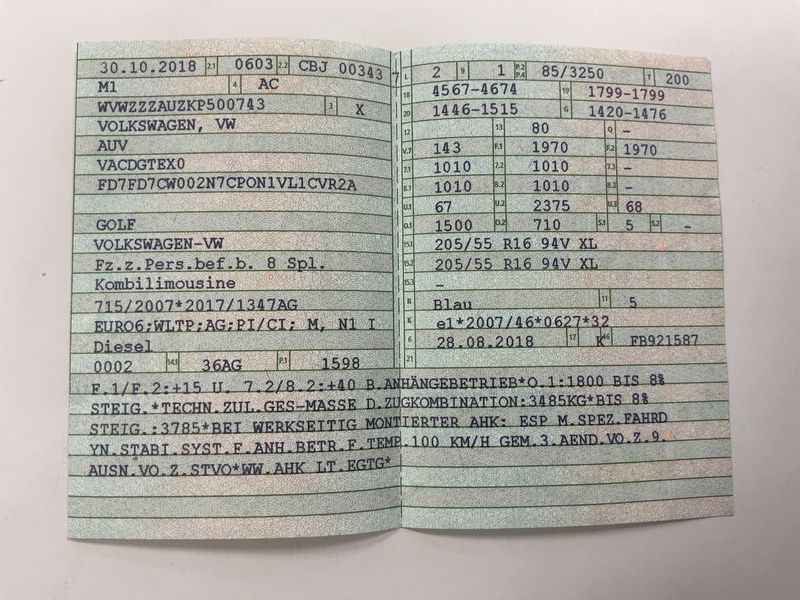 30.10.2018 2.1 0603 2.2 CBJ 00343 7
M1 4 AC
WVWZZZAUZKP500743 3 X
VOLKSWAGEN, VW
AUV
VACDGTEX0
FD7FD7CW002N7CPON1VL1CVR2A
GOLF
VOLKSWAGEN-VW
Fz.z.Pers.bef.b. 8 Spl.
Kombilimousine
715/2007*2017/1347AG
EURO6;WLTP;AG;PI/CI; M, N1 I
Diesel
0002 14.1 36AG P.1 1598
L 2 9 1 P.2 P.4 85/3250 T 200
18 4567-4674 19 1799-1799
20 1446-1515 G 1420-1476
12 13 80 Q -
V.7 143 F.1 1970 F.2 1970
7.1 1010 7.2 1010 7.3 -
8.1 1010 8.2 1010 8.3 -
U.1 67 U.2 2375 U.3 68
O.1 1500 O.2 710 S.1 5 S.2 -
15.1 205/55 R16 94V XL
15.2 205/55 R16 94V XL
15.3 -
R Blau 11 5
K e1*2007/46*0627*32
6 28.08.2018 17 K 16 FB921587
21
F.1/F.2:+15 U. 7.2/8.2:+40 B.ANHÄNGEBETRIEB*O.1:1800 BIS 8%
STEIG.*TECHN.ZUL.GES-MASSE D.ZUGKOMBINATION:3485KG*BIS 8%
STEIG.:3785*BEI WERKSEITIG MONTIERTER AHK: ESP M.SPEZ.FAHRD
YN.STABI.SYST.F.ANH.BETR.F.TEMP.100 KM/H GEM.3.AEND.VO.Z.9.
AUSN.VO.Z.STVO*WW.AHK LT.EGTG*